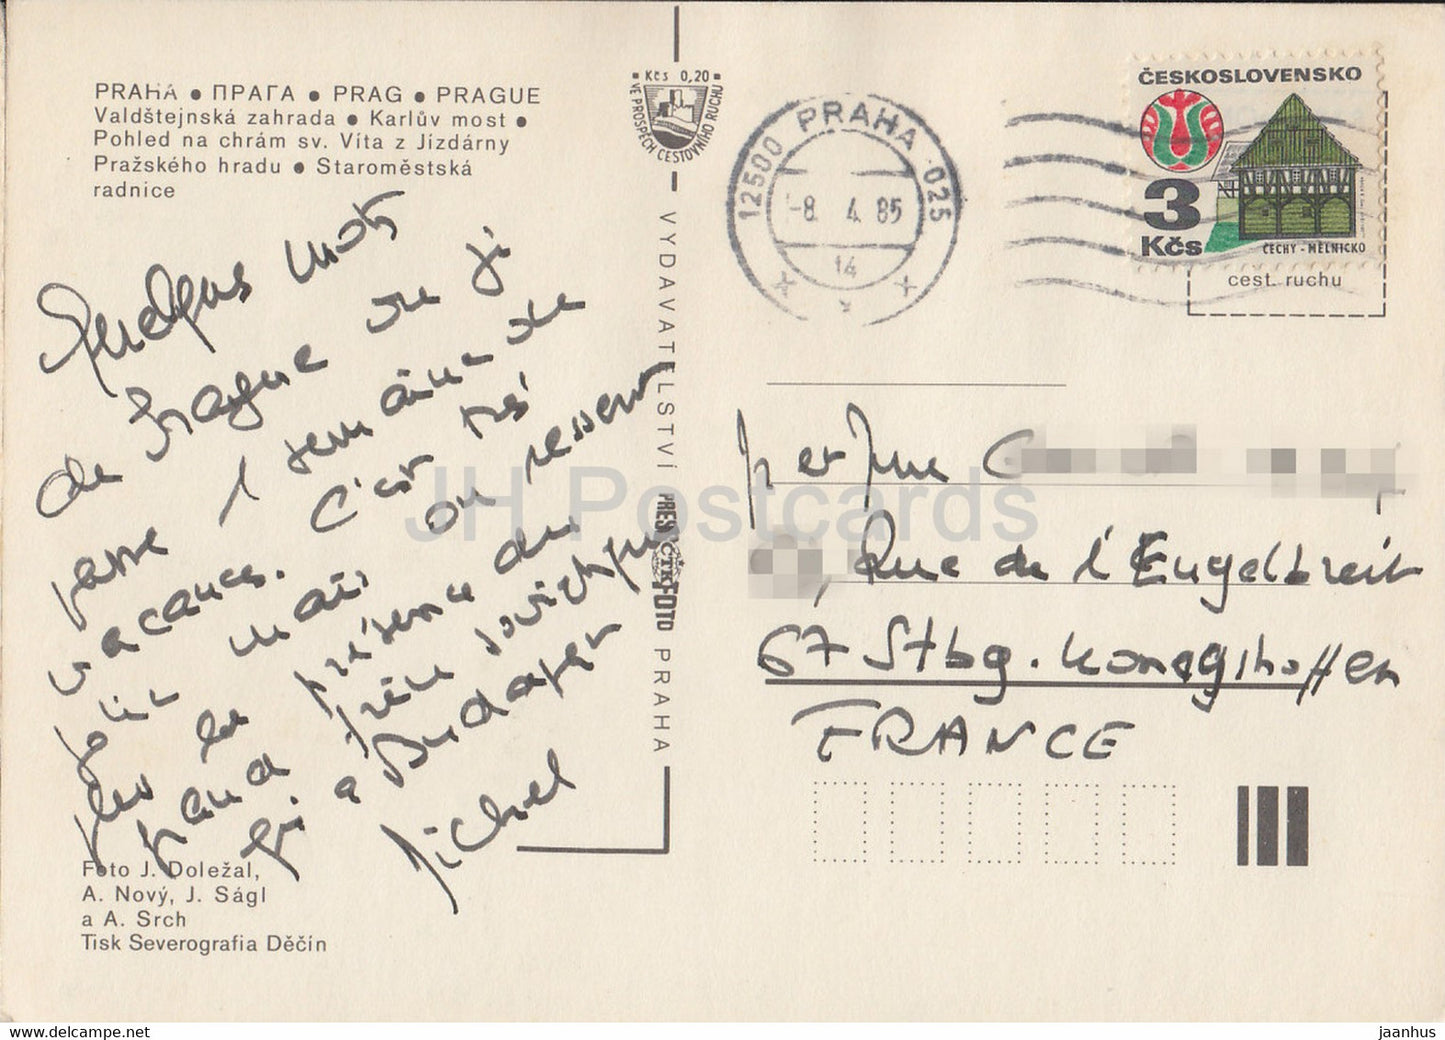 PRAHA ● ПРАГА ● PRAG ● PRAGUE
Valdštejnská zahrada ● Karlův most ●
Pohled na chrám sv. Víta z Jízdárny
Pražského hradu ● Staroměstská
radnice
Quelques mots
de Prague où je
passe 1 semaine de
vacances. C'est très
joli mais on ressent
plus la présence du
grand frère soviétique
qu'à Budapest
Michel
Foto J. Doležal,
A. Nový, J. Ságl
a A. Srch
Tisk Severografia Děčín
Kčs 0,20
VE PROSPĚCH CESTOVNÍHO RUCHU
VYDAVATELSTVÍ PRESSFOTO PRAHA
ČTK
12500 PRAHA 025
-8. 4. 85
14
ČESKOSLOVENSKO
3
Kčs
ČECHY - MĚLNICKO
cest. ruchu
et Mme
Rue de l'Engelbreit
67 Stbg. Koenigshoffen
FRANCE
JH Postcards
www.delcampe.net
jaanhus